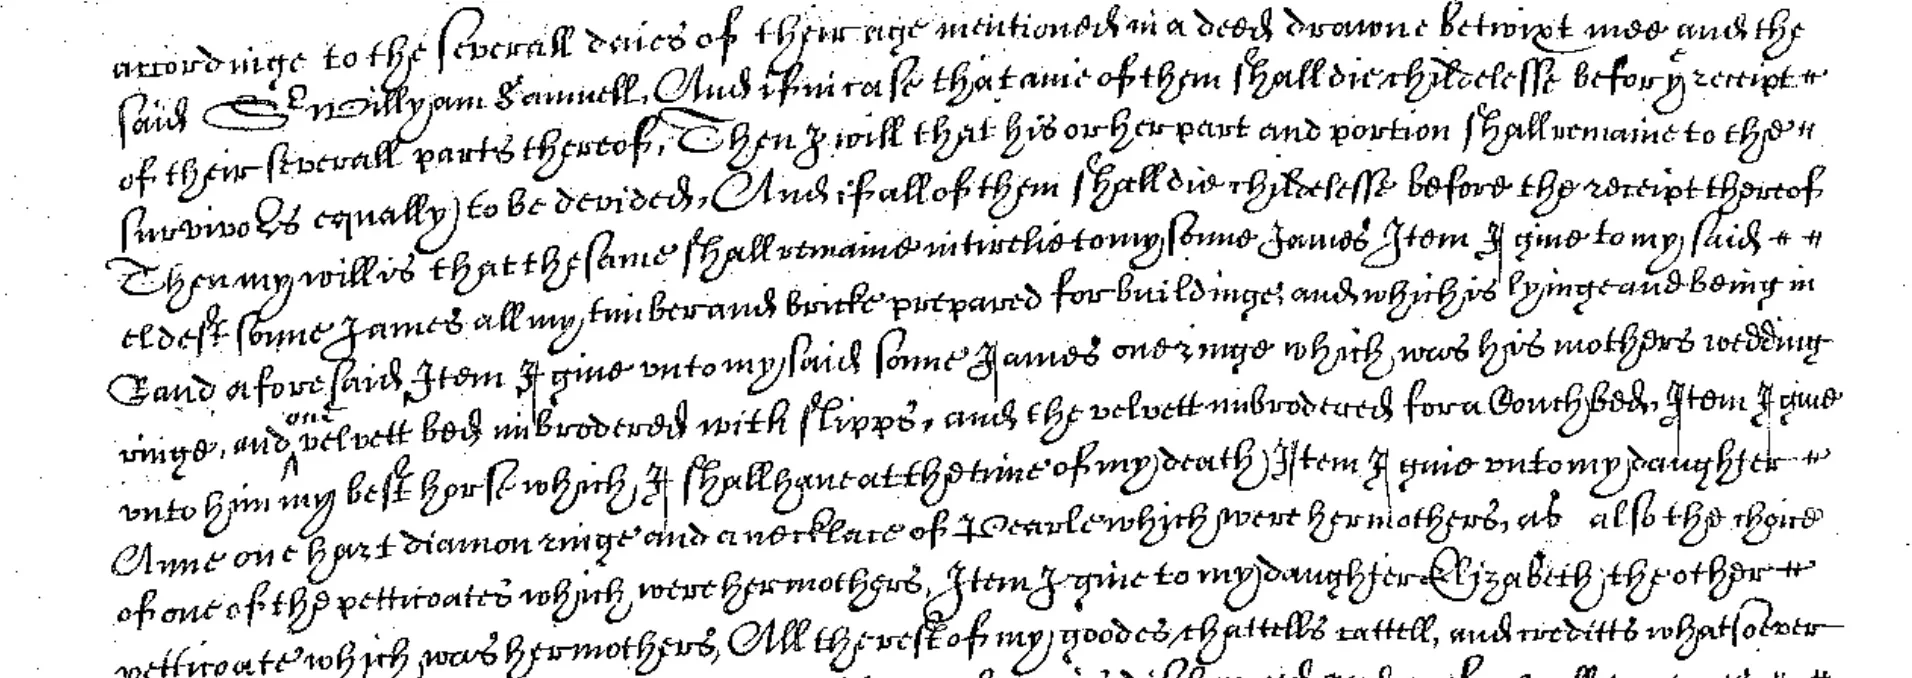 accordinge to the severall daies of their age mentioned in a deed drawne betwixt mee and the
said Sr Willyam Samuell, And if in case that anie of them shall die childelesse befor ye receipt
of their severall parts thereof, Then I will that his or her part and portion shall remaine to the
survivors equally to be devided, And if all of them shall die childelesse before the receipt thereof
Then my will is that the same shall remaine intirelie to my sonne James Item I give to my said
eldest sonne James all my timber and bricke prepared for buildinge, and which is lyinge and being in
aforesaid Item I give unto my said sonne James one ringe which was his mothers wedding
ringe, and one velvett bed imbrodered with slipps, and the velvett imbrodered for a Couch bed, Item I give
unto him my best horse which I shall have at the time of my death, Item I give unto my daughter
Anne one hart diamon ringe and a necklace of Pearle which were her mothers, as also the choice
of one of the petticoates which were her mothers, Item I give to my daughter Elizabeth the other
petticoate which was her mothers, All the rest of my goodes chattells cattell, and creditts whatsoever